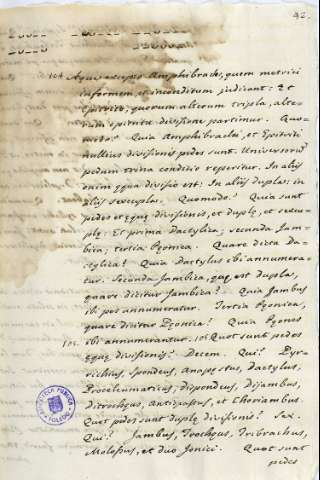 42.
104 Aqua excepto Amphibrache, quem metrici
informem, et inconditum judicant: Et
Epitrite, quorum alterum tripla, alte-
rum epitrita divisione partimur. Quo-
modo? Quia Amphibrachi, et Epitriti
nullius divisionis pedes sunt. Universorum
pedum trina conditio reperitur. In aliis
enim equa divisio est: In aliis duplex: in
aliis sexcuplex. Quomodo? Quia sunt
pedes et eque divisionis, et duple, et sexcu-
ple: Et prima Dactylica; secunda Jam-
bica; tertia Peonica. Quare dicta Da-
ctylica? Quia Dactylus ibi annumera-
tur. Secunda Jambica, que est dupla,
quare dicitur Jambica? Quia Jambus
ibi pes annumeratur. Tertia Peonica,
quare dicitur Peonica? Quia Peones
105. ibi annumerantur. 105 Quot sunt pedes
eque divisionis? Decem. Qui? Pyr-
richius, Spondeus, Anapestus, Dactylus,
Proceleumaticus, dispondeus, Dijambus,
ditrocheus, Antipastus, et Choriambus.
Quot pedes sunt duple divisionis? Sex.
Qui? Jambus, Trocheus, Tribrachus,
Molossus, et duo Jonici. Quot sunt
pedes
BIBLIOTECA PUBLICA
TOLEDO